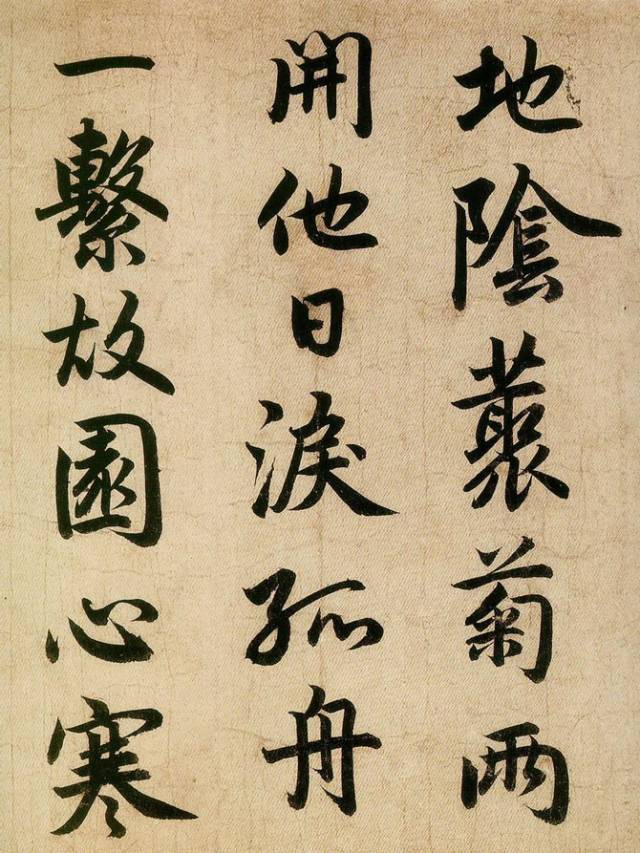 地陰叢菊兩
開他日淚孤舟
一繫故園心寒